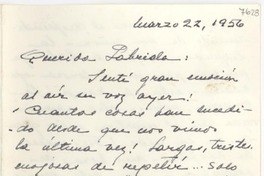 7628
Marzo 22, 1956
Querida Gabriela:
Sentí gran emoción
al oír su voz ayer!
¡Cuantas cosas han sucedi-
do desde que nos vimos
la última vez! Largas, tristes
de repetir... Solo